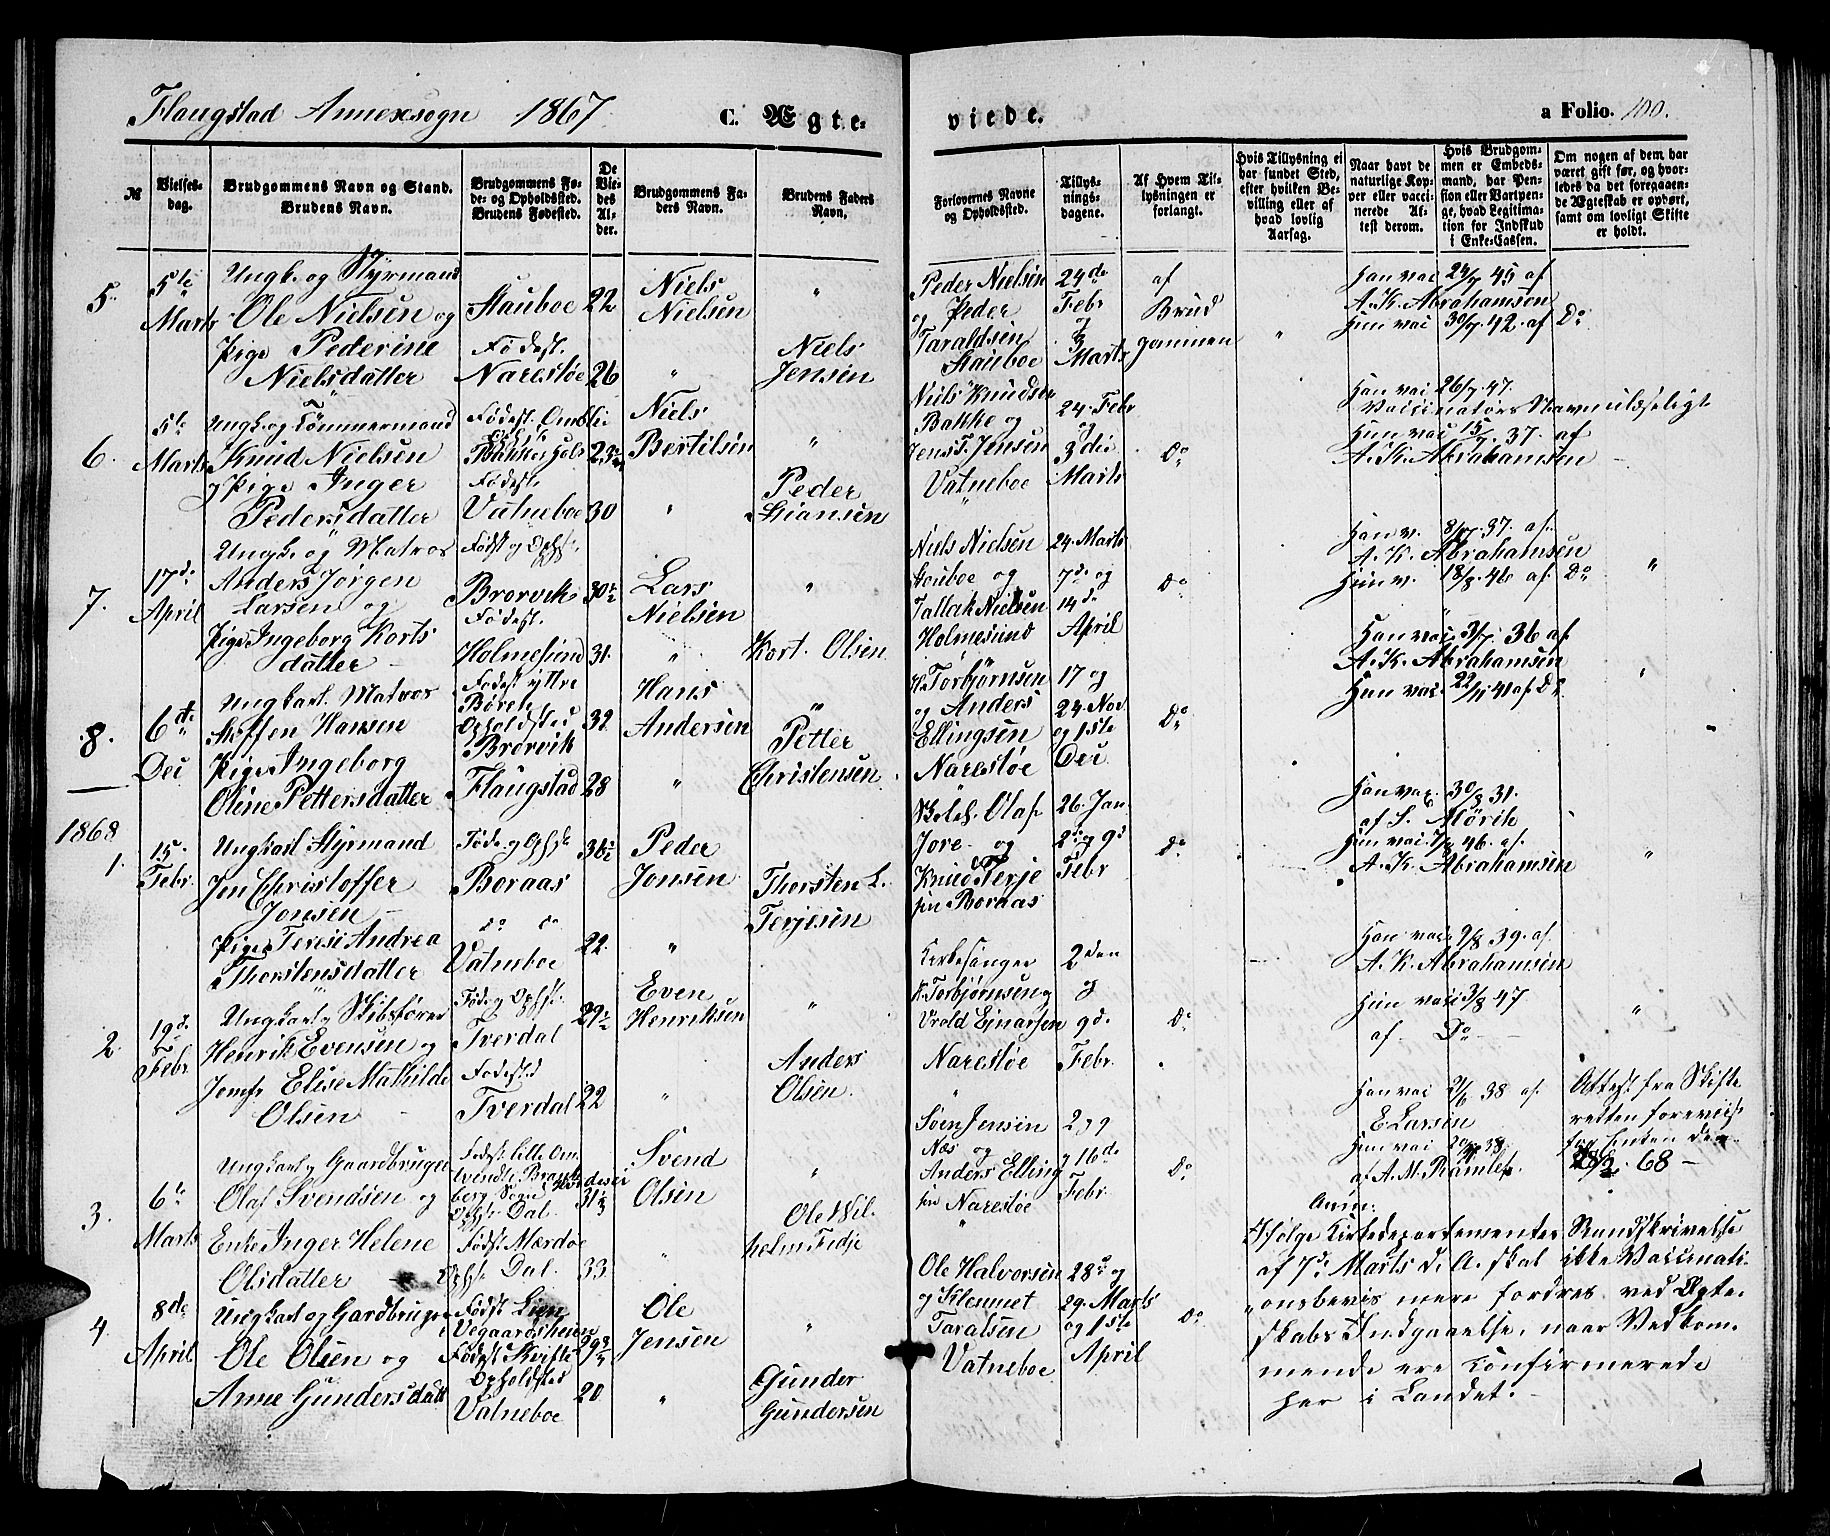 Flaugstad Annexsogn 1867. C. Ægte-
viede. a Folio. 100.
№
Vielses-
dag.
Brudgommens Navn og Stand.
Brudens Navn.
Brudgommens Fø-
de- og Opholdsted.
Brudens Fødested.
De
Vie-
des
Al-
der.
Brudgommens Fa-
ders Navn.
Brudens Faders
Navn,
Forlovernes Navne
og Opholdssted.
Tillys-
nings-
dagene.
Af Hvem Til-
lysningen er
forlangt.
Hvis Tillysning ei
har fundet Sted,
efter hvilken Be-
villing eller af
hvad lovlig
Aarsag.
Naar havt de
naturlige Kop-
per eller vacci-
nerede At-
test derom.
Hvis Brudgom-
men er Embeds-
mand, har Pen-
sion eller Vartpen-
ge, hvad Legitima-
tion for Indskud
i Enke-Cassen.
Om nogen af dem har
været gift før, og hvor-
ledes da det foregaaen-
de Ægteskab er ophørt,
samt om lovligt Skifte
er holdt.
5.
5te
Marts
Ungk. og Styrmand
Ole Nielsen og
Pige Pederine
Nielsdatter
Stauboe
Fødest.
Narestøe
22
26
Niels
Nielsen
"
"
Niels
Jensen
Peder Nielsen
og Peder
Taraldsen
Stauboe
24de
Febr
og
3
Marts
af
Brud
gommen
"
Han vac 24/7 45 af
A. K. Abrahamsen
Hun vac 30/7. 42. af Do
6.
5te
Marts
Ungk. og Tømmermand
Knud Nielsen
og Pige Inger
Pedersdatter
Fødest. Omblie
Fødest.
Vatneboe
30
Niels
Bertilsen
"
"
Peder
Stiansen
Niels Knudsen
Bakke og
Jens T. Jensen
Vatneboe
24. Febr
og
3die
Marts
Do
Han vac 26/7. 47.
Vaccinatørs Navn ulæseligt
Hun vac 15/7. 37. af
A. K. Abrahamsen
7.
17de
April
Ungk. og Matros
Anders Jørgen
Larsen og
Pige Ingeborg Korts
datter
Fødest og Opholdst.
Brorvik
Fødest.
Holmesund
30½
31.
Lars
Nielsen
"
"
Kort. Olsen
Niels Nielsen
Stouboe og
Tallak Nielsen
Holmesund
24. Marts
7de og
14de
April
Do
Han v. 8/7. 37. af
A. K. Abrahamsen
Hun v. 18/8. 46 af. Do
"
8.
6te
Dec
Ungkarl. Matros
Steffen Hansen
Pige Ingeborg
Oline Pettersdatter
Fødest. yttre
Opholdsted
Brorvik
Flaugstad
32
28
Hans
Andersen
"
"
Petter
Christensen
H. Torbjørnsen
og Anders
Ellingsen
Narestøe
17 og
24. Nov.
og 1ste
Dec
Do
Han vac 3/7. 36 af
A. K. Abrahamsen
Hun vac. 22/11 41 af Do
"
1868
1.
15.
Febr
Ungkarl Styrmand
Jen Christoffer
Jonsen
Pige Terese Andrea
Thorstensdatter
Føde og Ophst
Boraas
do do
Vatneboe
22.
Peder
Jonsen
"
Thorsten L.
Terjesen
Olaf
Jore og
Knud Terje
sen Boraas
26. Jan
2de og 9de
Febr
Do
Han vac. 30/8 31.
af S. Mörik
Hun vac 7/8 46. af.
A. K. Abrahamsen
"
2.
19de
Febr
Ungkarl og Skibsfører
Henrik Evensen og
Jomfr Elise Mathilde
Olsen
Føde og Ophst.
Tverdal
Fødested
Tverdal
29½
22
Even
Henriksen
"
"
Anders
Olsen.
Kirkesanger
K. Torbjørnsen og
Vrold Ejnarsen
Narestøe
2den
og
9de.
Febr
Do
Han vac 9/8 39. af.
A. K. Abrahamsen
Hun vac 3/8 47
af Do
"
3.
6te
Marts
Ungkarl og Gaardbruger
Olaf Svendsen og
Enke Inger Helene
Olsdatter
Fødest. Lille Om
Ophst. Dal.
Fødst Mærdøe
Ophst Dal
31⅓
33
Svend
Olsen
"
"
Ole Wil.
helm Fidje
Søen Jensen
Næs og
Anders Elling
sen Narestøe
2 og 9
og 16de
Febr
Do
Han vac 2/6 38 af.
E. Larsen
Hun vac 20/10 38.
af A. M. Ramlef.
Attest fra Skifte
retten foreviist
fra Enken den
28/2. 68
4.
8de
April
Ungkarl og Gardbruger
Ole Olsen og
Anne Gundersdatt
Fødst Lien
i Vegaardsheien
Fødest Kvifte
Opholdsted
Vatneboe
29¾
20
Ole
Jensen
"
"
Gunder
Gundersen
Ole Halvorsen
og Klemmet
Taralsen
Vatneboe
28de og
29. Marts
og 1ste
April
Do
Anm:
Ifølge Kirkedepartementets Rundskrivelse
af 7de Marts d. A. skal ikke Vaccinati-
onsbevis mere fordres ved Ægte-
skabs Indgaaelse, naar Vedkom-
mende ere Confirmerede
her i Landet.